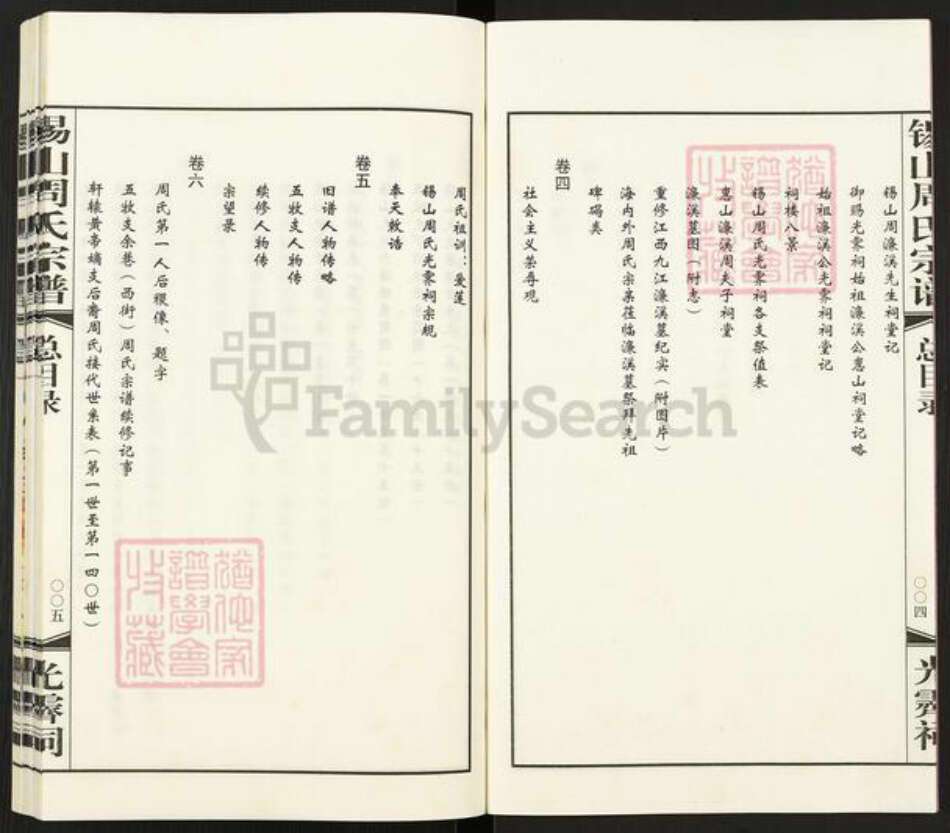 锡山周氏宗谱
总目录
〇〇四
光霁祠
锡山周濂溪先生祠堂记
御赐光霁祠始祖濂溪公惠山祠堂记略
始祖濂溪公光霁祠祠堂记
祠楼八景
锡山周氏光霁祠各支祭值表
惠山濂溪周夫子祠堂
濂溪墓图（附志）
重修江西九江濂溪墓纪实（附图片）
海内外周氏宗亲莅临濂溪墓祭拜先祖
碑碣类
卷四
社会主义荣辱观
周氏祖训：爱莲
锡山周氏光霁祠宗规
奉天敕诰
卷五
旧谱人物传略
五牧支人物传
续修人物传
宗望录
卷六
周氏第一人后稷像、题字
五牧支余巷（西街）周氏宗谱续修记事
轩辕黄帝嫡支后裔周氏接代世系表（第一世至第一四〇世）
锡山周氏宗谱
总目录
〇〇五
光霁祠
犹他家谱学会收藏
犹他家谱学会收藏
FamilySearch